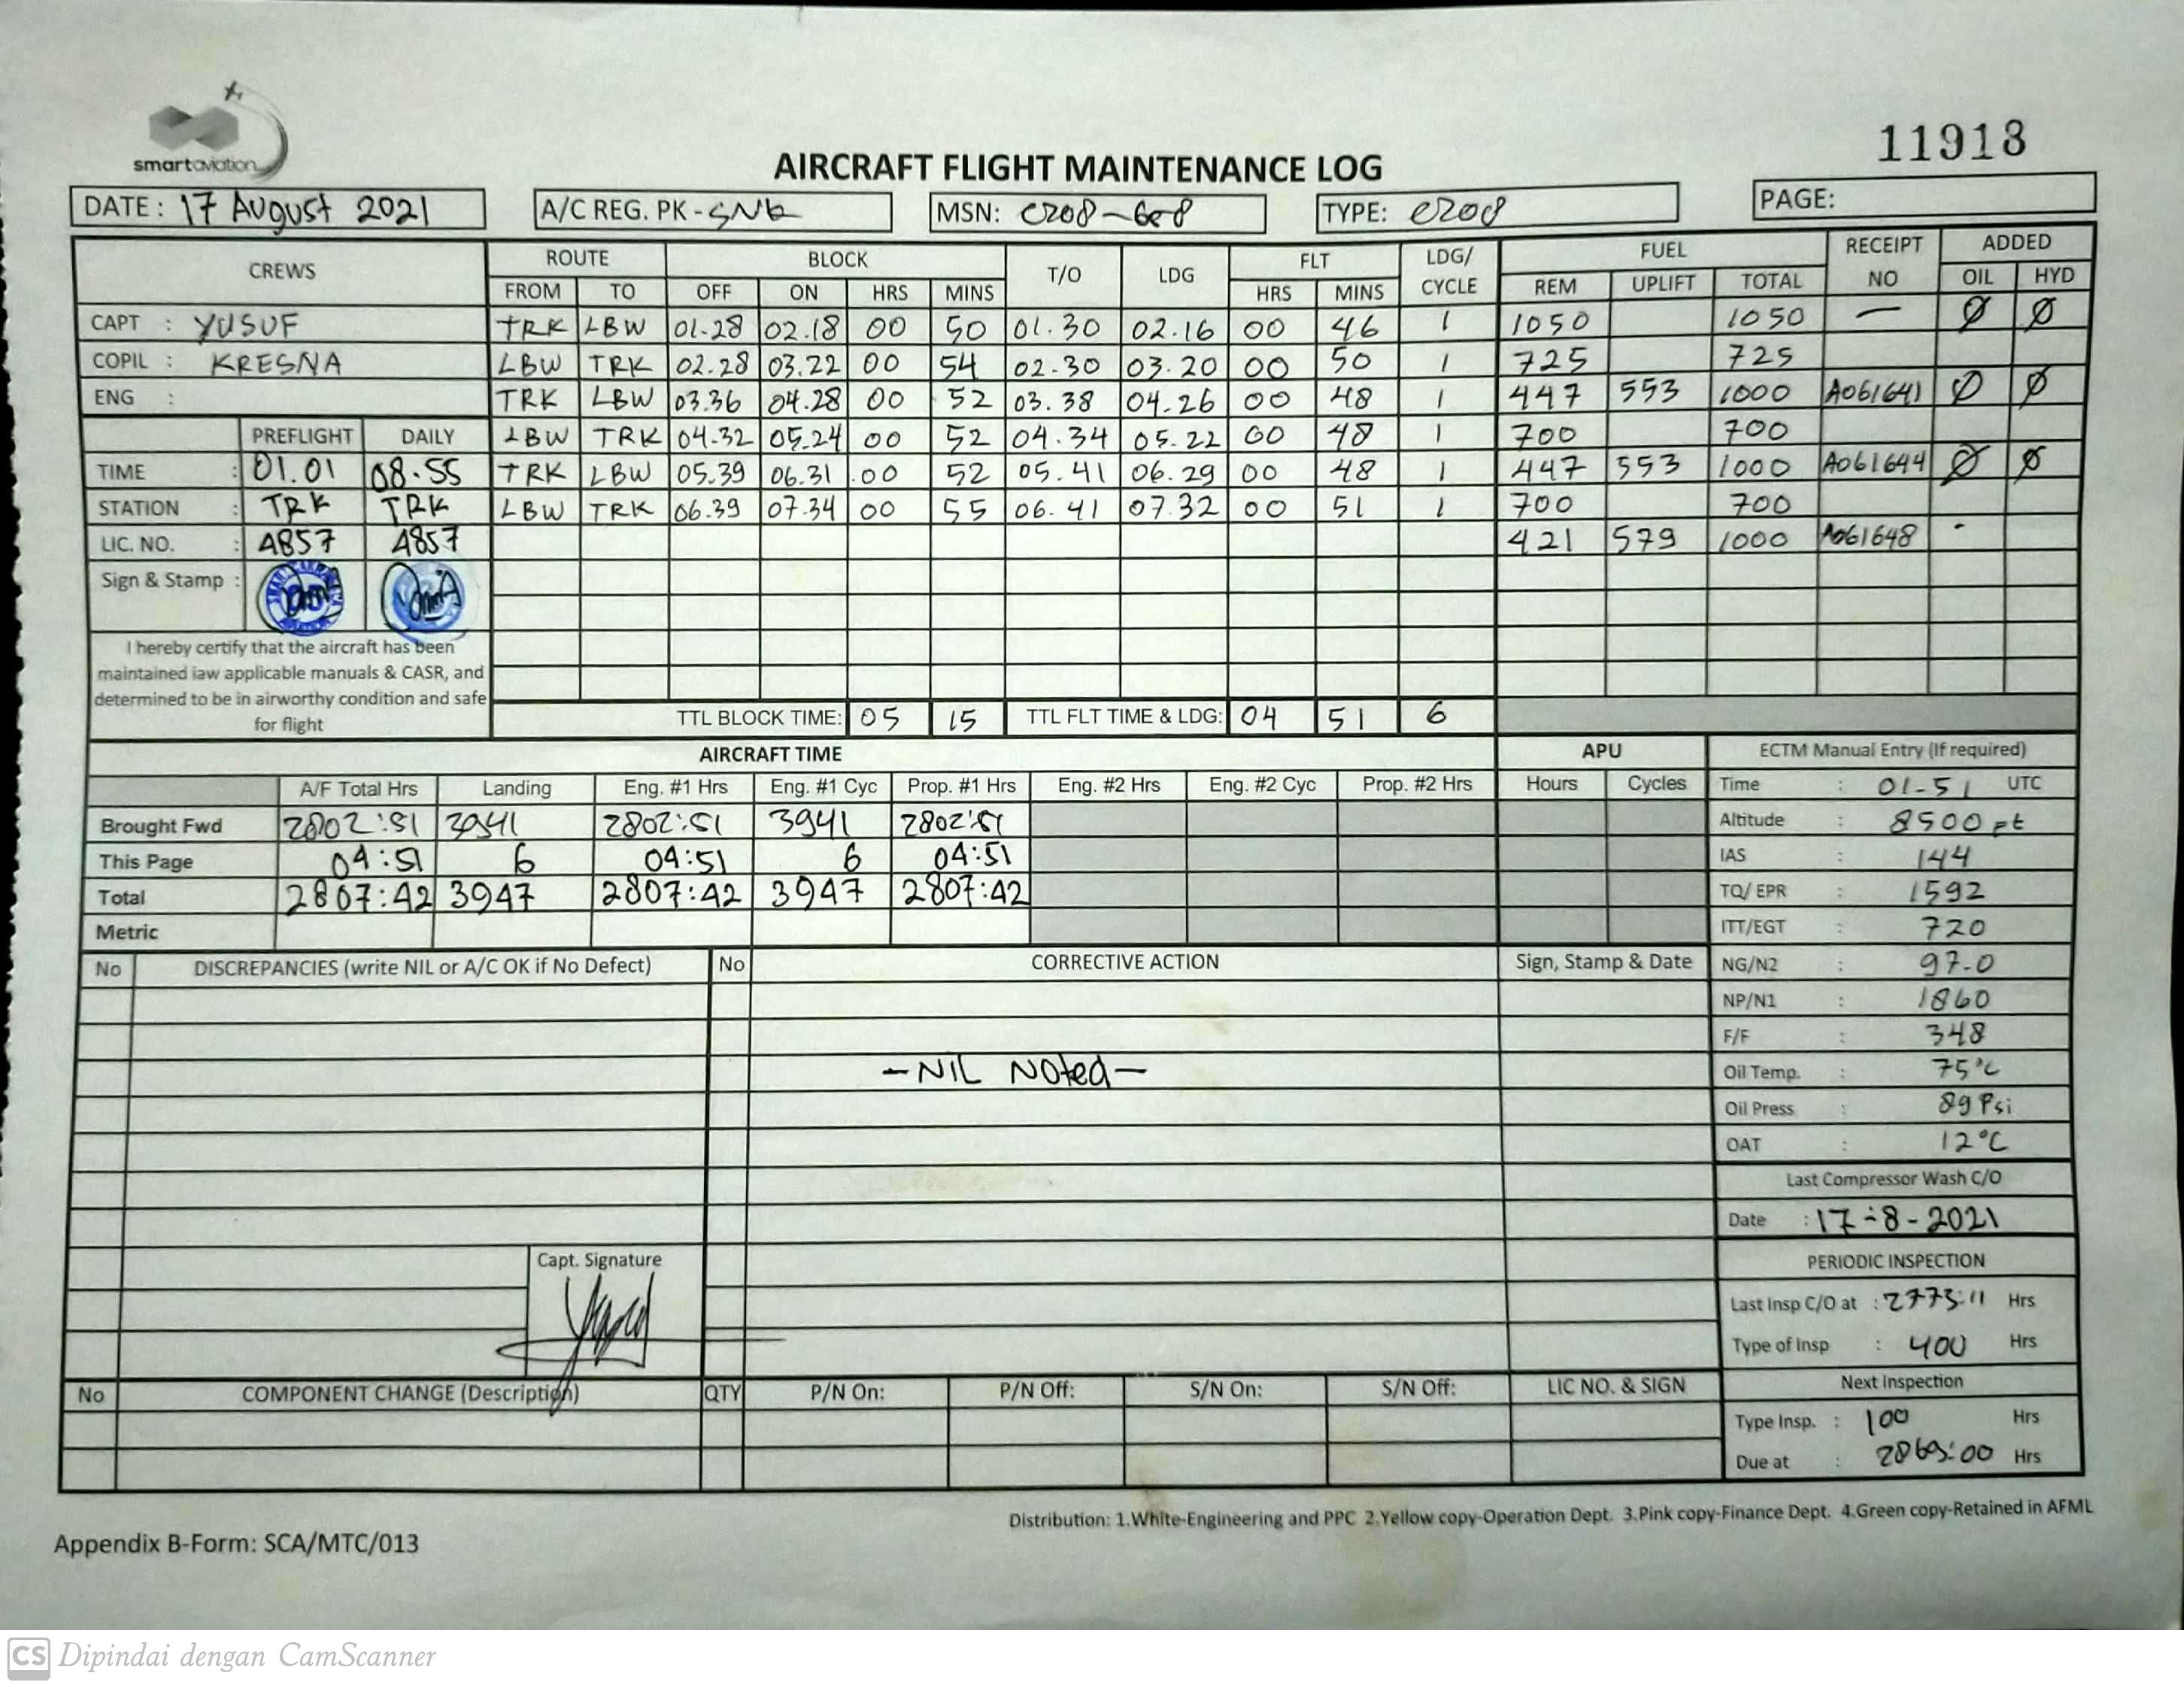 smartaviation
11918
AIRCRAFT FLIGHT MAINTENANCE LOG
DATE: 17 August 2021 A/C REG. PK - SNK MSN: C208-608 TYPE: C208 PAGE:
CREWS ROUTE BLOCK T/O LDG FLT LDG/ CYCLE FUEL RECEIPT NO ADDED
FROM TO OFF ON HRS MINS HRS MINS REM UPLIFT TOTAL OIL HYD
CAPT : YUSUF TRK LBW 01-28 02.18 00 50 01.30 02.16 00 46 1 1050 1050 — Ø Ø
COPIL : KRESNA LBW TRK 02.28 03.22 00 54 02.30 03.20 00 50 1 725 725
ENG : TRK LBW 03.36 04.28 00 52 03.38 04.26 00 48 1 447 553 1000 A061641 Ø Ø
PREFLIGHT DAILY LBW TRK 04-32 05.24 00 52 04.34 05.22 00 48 1 700 700
TIME : 01.01 08.55 TRK LBW 05.39 06.31 00 52 05.41 06.29 00 48 1 447 553 1000 A061644 Ø Ø
STATION : TRK TRK LBW TRK 06.39 07.34 00 55 06.41 07.32 00 51 1 700 700
LIC. NO. : 4857 4857 421 579 1000 A061648
Sign & Stamp :
I hereby certify that the aircraft has been
maintained iaw applicable manuals & CASR, and
determined to be in airworthy condition and safe
for flight
TTL BLOCK TIME: 05 15 TTL FLT TIME & LDG: 04 51 6
AIRCRAFT TIME APU ECTM Manual Entry (If required)
A/F Total Hrs Landing Eng. #1 Hrs Eng. #1 Cyc Prop. #1 Hrs Eng. #2 Hrs Eng. #2 Cyc Prop. #2 Hrs Hours Cycles Time : 01-51 UTC
Brought Fwd 2802:51 3941 2802:51 3941 2802:51 Altitude : 8500 Ft
This Page 04:51 6 04:51 6 04:51 IAS : 144
Total 2807:42 3947 2807:42 3947 2807:42 TQ/ EPR : 1592
Metric ITT/EGT : 720
No DISCREPANCIES (write NIL or A/C OK if No Defect) No CORRECTIVE ACTION Sign, Stamp & Date NG/N2 : 97.0
NP/N1 : 1860
F/F : 348
— NIL Noted — Oil Temp. : 75°C
Oil Press : 89 Psi
OAT : 12°C
Last Compressor Wash C/O
Date : 17-8-2021
Capt. Signature PERIODIC INSPECTION
Last Insp C/O at : 2773:11 Hrs
Type of Insp : 400 Hrs
No COMPONENT CHANGE (Description) QTY P/N On: P/N Off: S/N On: S/N Off: LIC NO. & SIGN Next Inspection
Type Insp. : 100 Hrs
Due at : Hrs
Distribution: 1.White-Engineering and PPC 2.Yellow copy-Operation Dept. 3.Pink copy-Finance Dept. 4.Green copy-Retained in AFML
Appendix B-Form: SCA/MTC/013
CS Dipindai dengan CamScanner